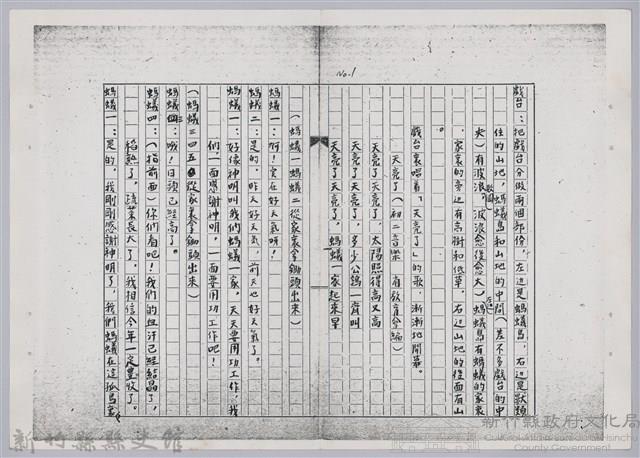 No.1
戲台：把戲台分做兩個部份，左边是螞蟻島，右边是獸類
住的山地，螞蟻島和山地的中間（差不多戲台的中
央）有波浪，波浪愈後愈大）螞蟻島有螞蟻的家裏
家裏的旁边有高樹和低草，右边山地的後面有山
戲台裏唱着「天亮了」的歌，漸漸地開幕。
天亮了（初二音樂　有飲食參編）
天亮了天亮了，太陽照得高又高
天亮了天亮了，多少公鷄一齊叫
天亮了天亮了，螞蟻一家起來早
（螞蟻一螞蟻二從家裏拿鋤頭出來）
螞蟻一：阿！实在好天氣呀！
螞蟻二：是的，昨天好天氣，前天也好天氣了。
螞蟻一：好像神明叫我們螞蟻一家，天天要用功工作，我
們一面感謝神明，一面要用功工作吧！
（螞蟻三四五從家裏拿鋤頭出來）
螞蟻三：哦！日頭已經高了。
螞蟻四：（指前面）你們看吧！我們的血汗已經結晶了，
稻熟了，蔬菜長大了，我相信今年一定豐收了。
螞蟻一：是的，我剛剛感謝神明了，我們螞蟻在這孤島
新竹縣縣史館
新竹縣政府文化局
Cultural Affairs Bureau of Hsinchu
County Government